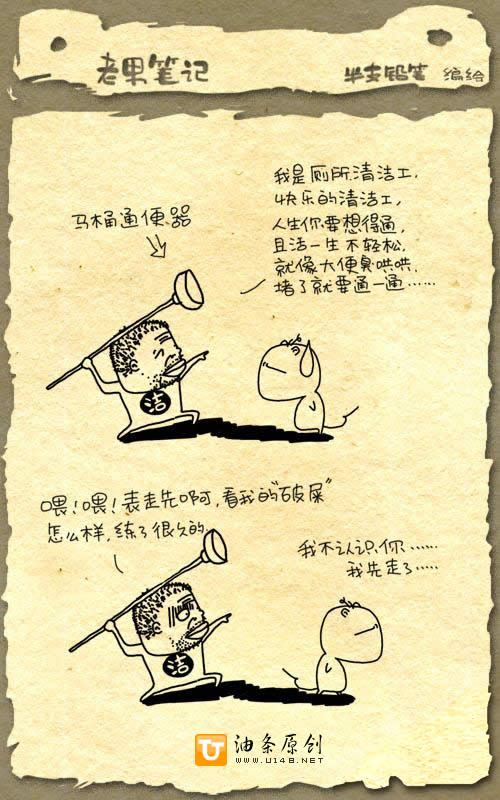 老果笔记
半支铅笔 编绘
我是厕所清洁工,
快乐的清洁工,
人生你要想得通,
且洁一生不轻松,
就像大便臭哄哄,
堵了就要通一通……
马桶通便器
洁
喂！喂！表走先啊，看我的"破屎"
怎么样，练了很久的
我不认识你……
我先走了……
洁
油条原创
WWW.U148.NET